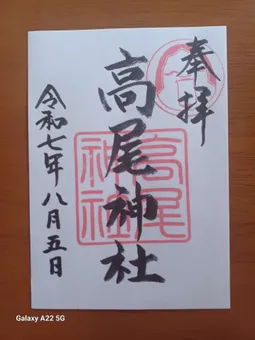 奉拝
高尾神社
高尾神社
令和七年八月五日
Galaxy A22 5G